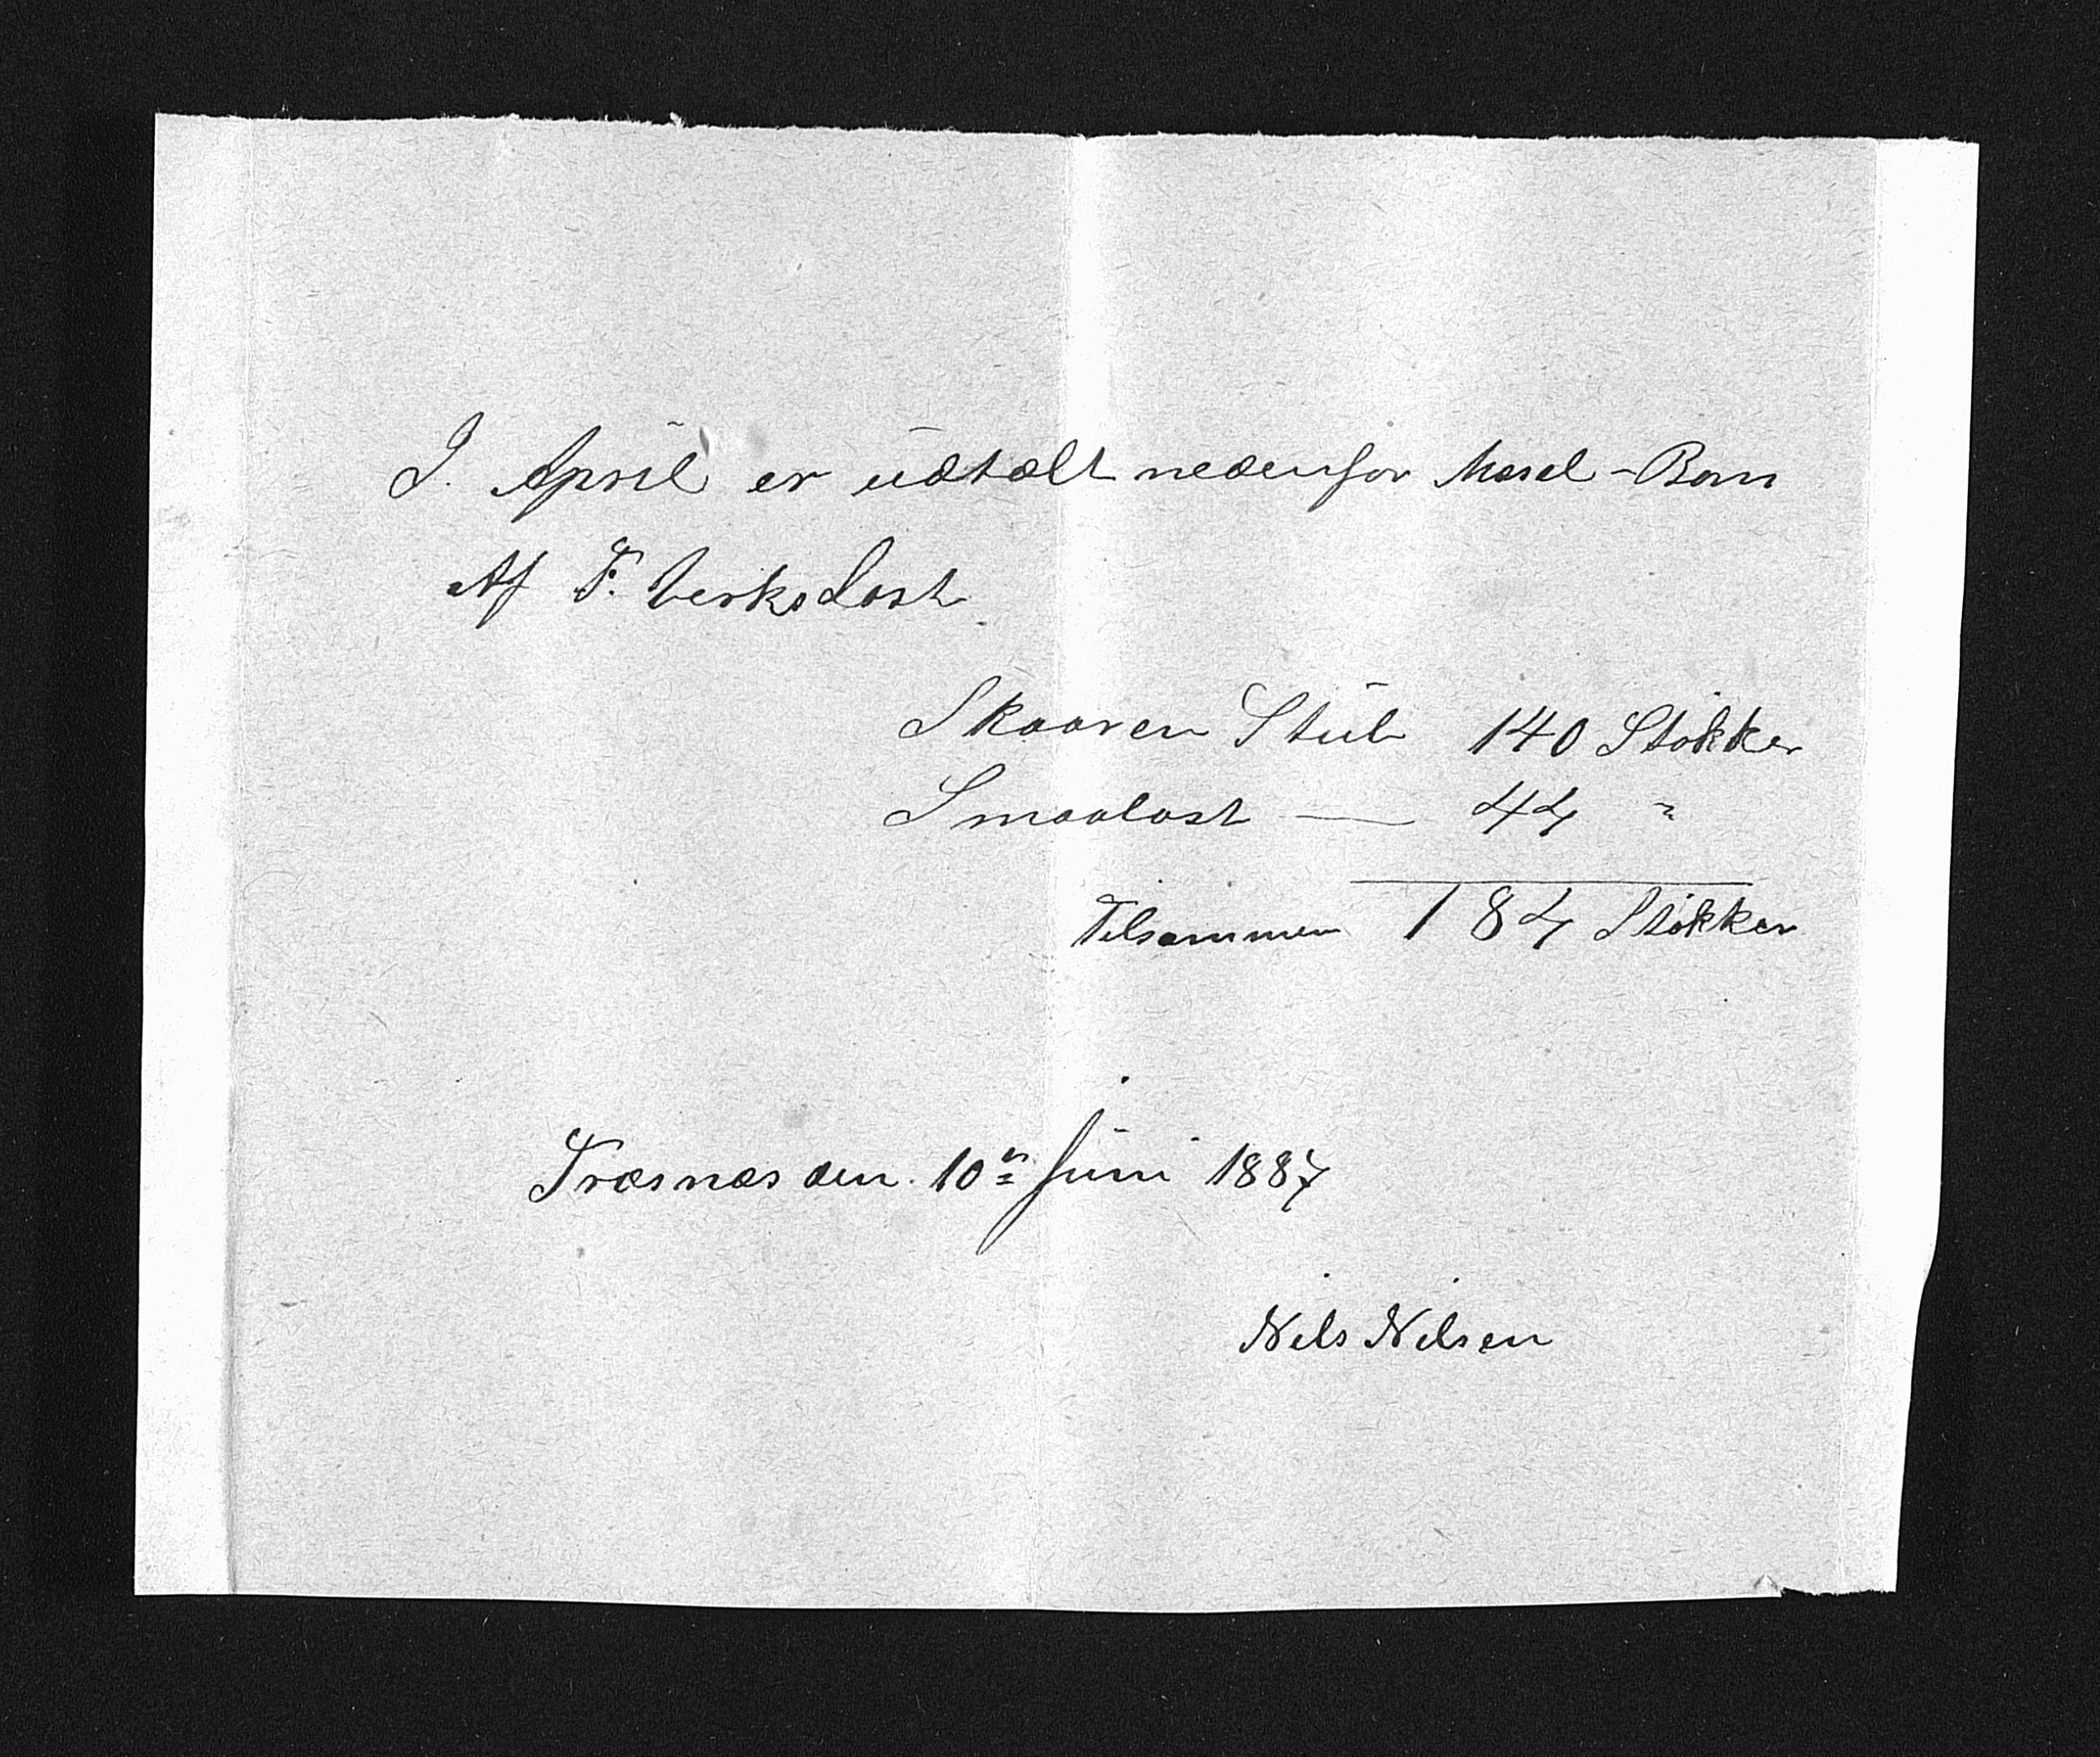 I. April er udtælt nedenfor Mosel-Bom
Af F. Verks Last
Skaaren Stub 140 Stokker
Smaalast — 44 "
Tilsammen 184 Stokker
Træsnæs den 10de Juni 1887
Nils Nilsen